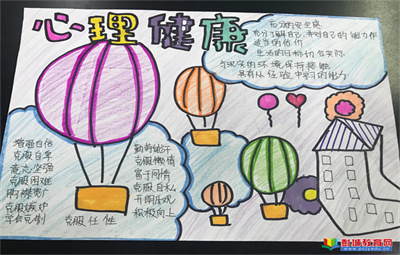 心理健康
充分的安全感
充分了解自己，并对自己的能力作
适当的估价
生活的目标切合实际
与现实的环境保持接触
具有从经验中学习的能力
增强自信
克服自卑
意志坚强
克服困难
胸襟宽广
克服嫉妒
学会克制
克服任性
勤奋
克服懒惰
富于同情
克服自私
开朗乐观
积极向上
彭城教育网